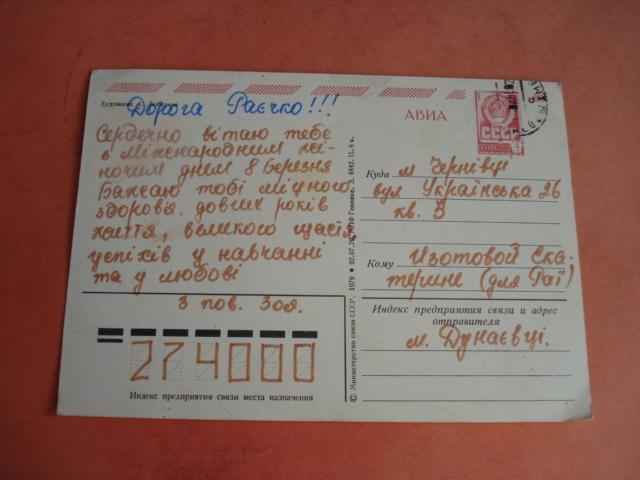 Художник
Дорога Раєчко!!!
Сердечно вітаю тебе
з Міжнародним жі-
ночим днем 8 Березня
Бажаю тобі міцного
здоров'я, довгих років
життя, великого щастя,
успіхів у навчанні
та у любові
з пов. Зоя.
274000
Индекс предприятия связи места назначения
© Министерство связи СССР, 1979
АВИА
СССР
Куда м Чернівці
вул Українська 26
кв. 3
Кому Изотовой Ека-
терине (для Раї)
Индекс предприятия связи и адрес
отправителя
м. Дунаєвці.